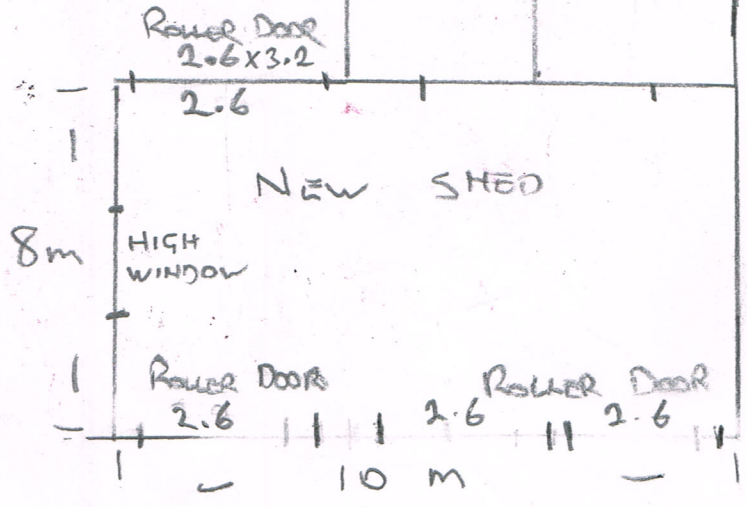 ROLLER DOOR
2.6 x 3.2
2.6
NEW SHED
8m
HIGH
WINDOW
ROLLER DOOR
ROLLER DOOR
2.6
2.6
2.6
10 m